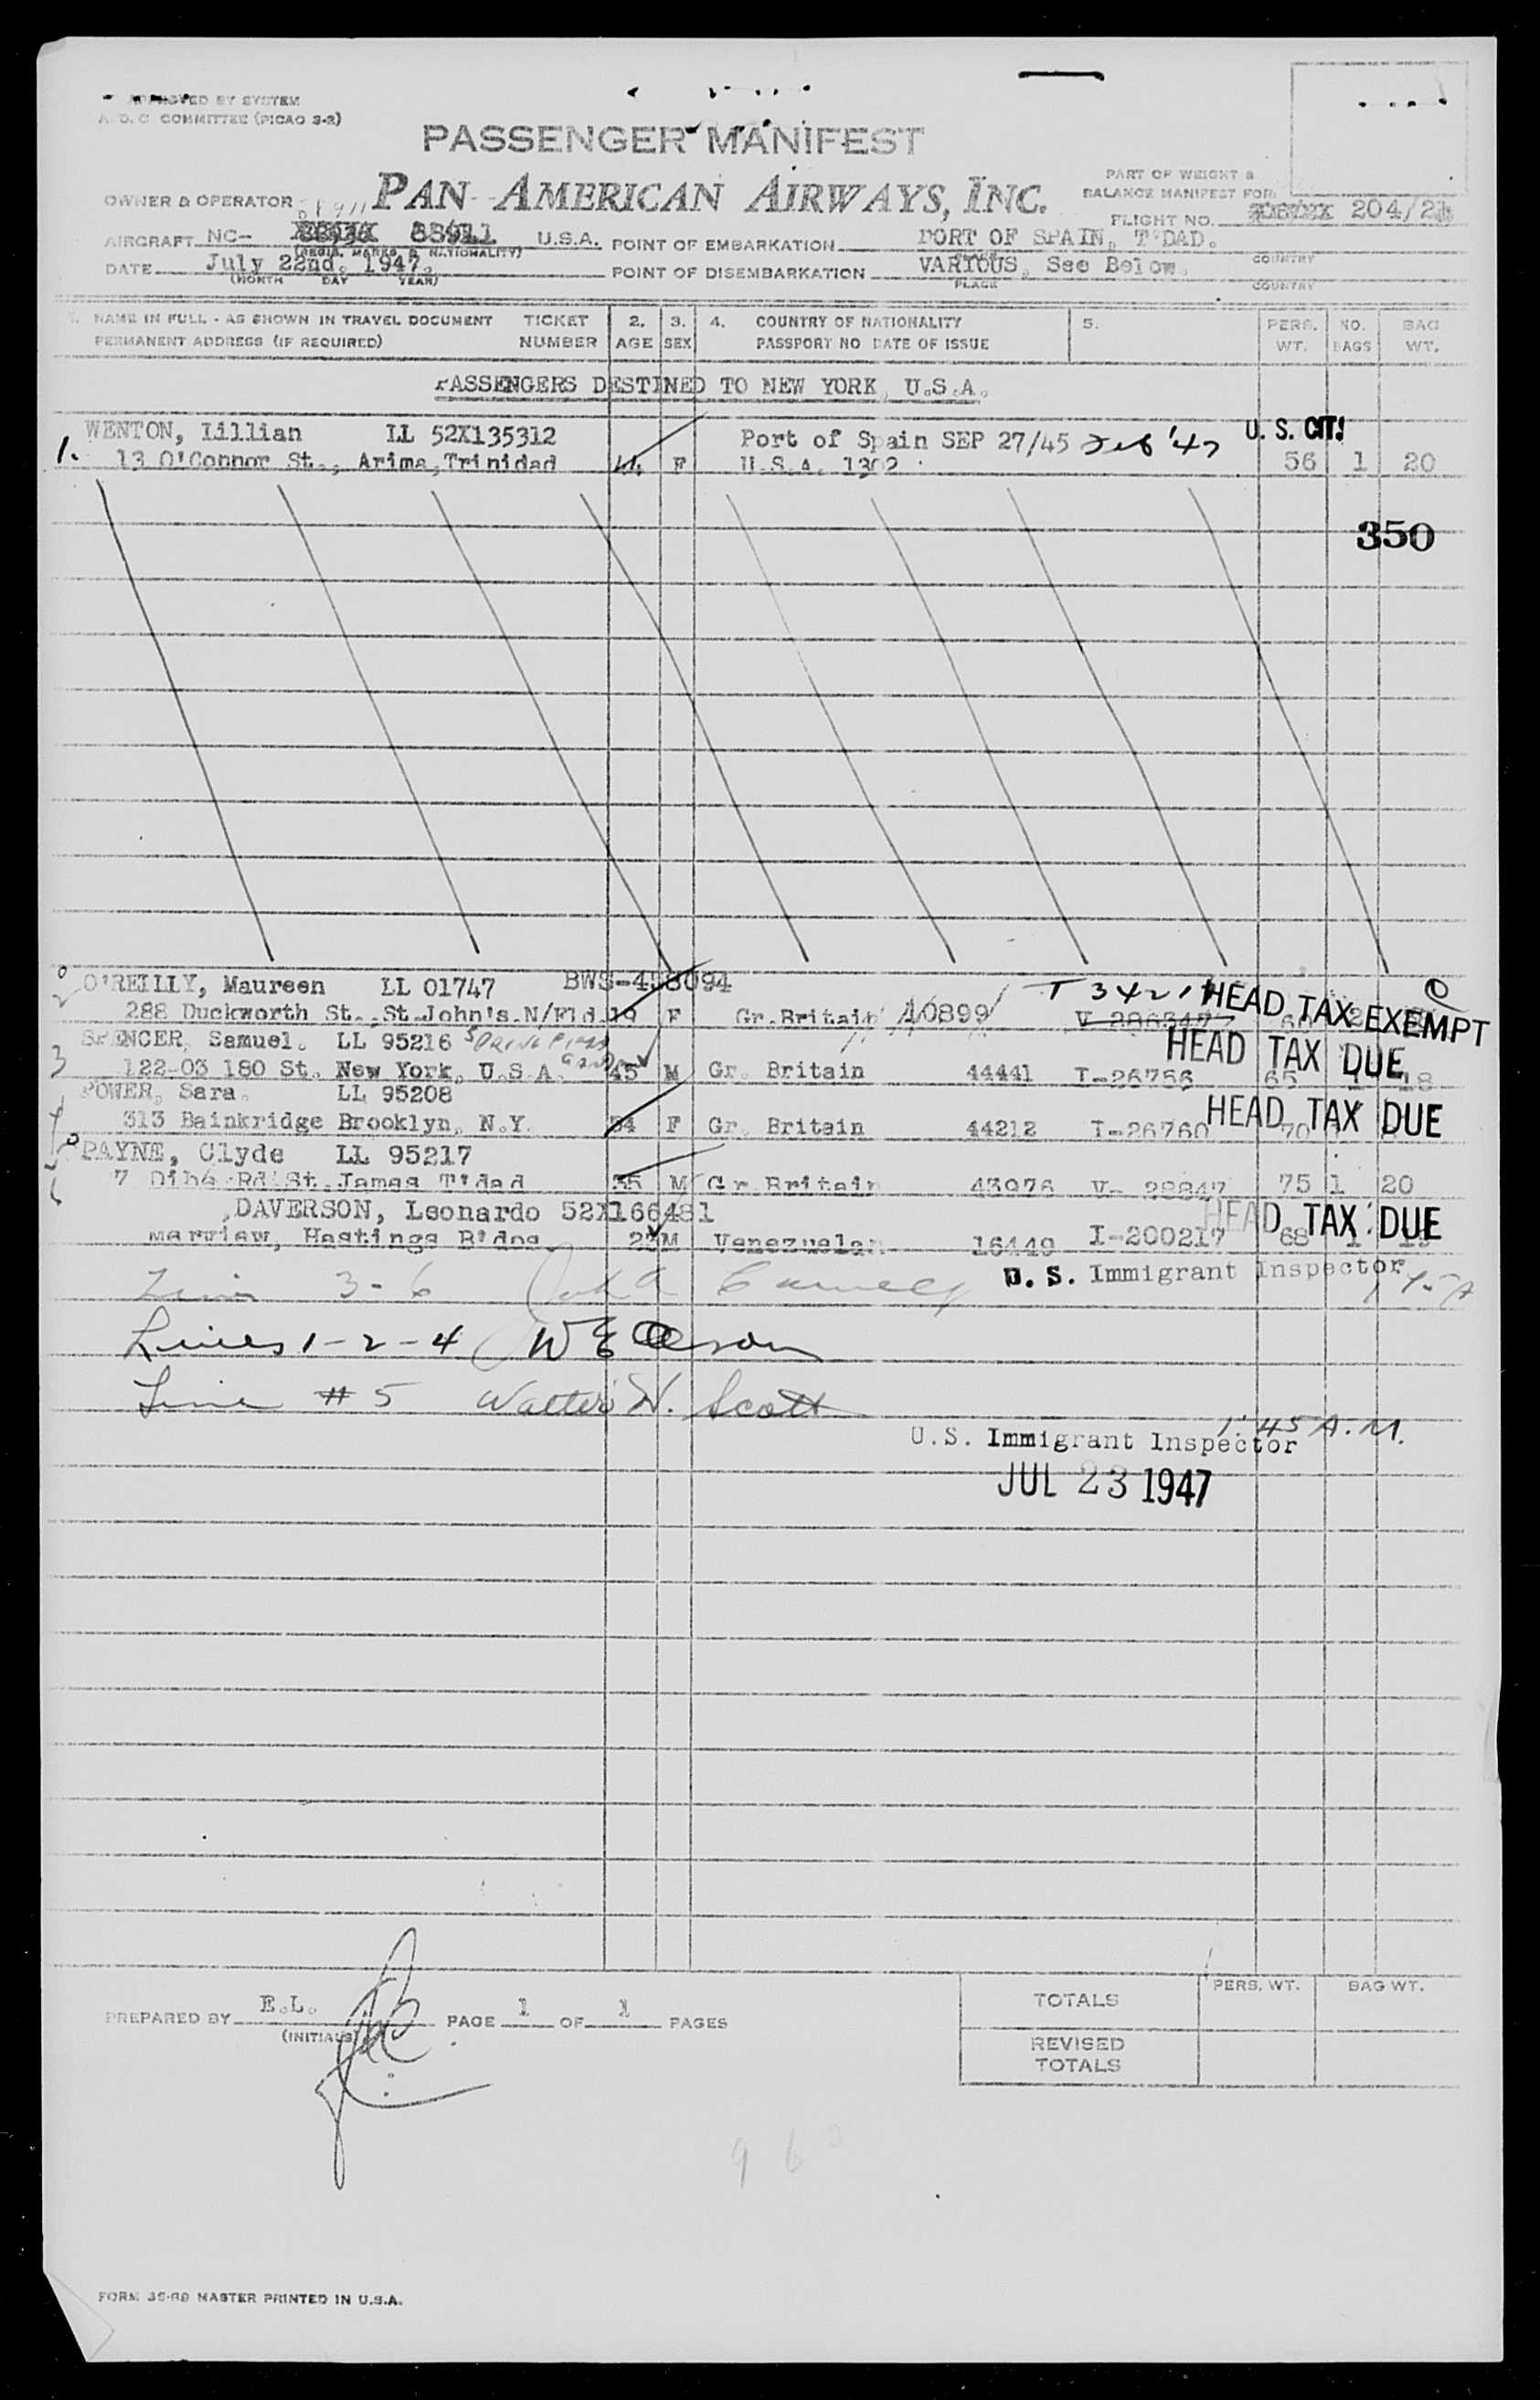 APPROVED BY SYSTEM
A. D. C. COMMITTEE (PICAO 3-2)
PASSENGER MANIFEST
PAN AMERICAN AIRWAYS, INC.
PART OF WEIGHT &
BALANCE MANIFEST FOR:
OWNER & OPERATOR
FLIGHT NO. 204/21
AIRCRAFT NC- 88911 U.S.A. POINT OF EMBARKATION PORT OF SPAIN, T'DAD.
(REGIS. MARKS & NATIONALITY) PLACE COUNTRY
DATE July 22nd. 1947. POINT OF DISEMBARKATION VARIOUS, See Below.
(MONTH DAY YEAR) PLACE COUNTRY
1. NAME IN FULL - AS SHOWN IN TRAVEL DOCUMENT TICKET 2. 3. 4. COUNTRY OF NATIONALITY 5. PERS. NO. BAG
PERMANENT ADDRESS (IF REQUIRED) NUMBER AGE SEX PASSPORT NO DATE OF ISSUE WT. BAGS WT.
PASSENGERS DESTINED TO NEW YORK, U.S.A.
WENTON, Lillian LL 52X135312 Port of Spain SEP 27/45 Feb '47 U. S. CIT.
1. 13 O'Connor St., Arima, Trinidad F U.S.A. 1302 56 1 20
350
O'REILLY, Maureen LL 01747 BWS-458094 T 3421
2 288 Duckworth St., St.John's.N/Fld. 19 F Gr.Britain 40899 HEAD TAX EXEMPT
SPENCER, Samuel. LL 95216 HEAD TAX DUE
3 122-03 180 St. New York, U.S.A. 45 M Gr. Britain 44441 I-26756 65 1 18
POWER, Sara. LL 95208 HEAD TAX DUE
4 313 Bainkridge Brooklyn, N.Y. 34 F Gr. Britain 44212 I-26760 70
PAYNE, Clyde LL 95217
5 7 Dibé Rd St.James T'dad 35 M Gr.Britain 43976 V- 28847 75 1 20
DAVERSON, Leonardo 52X166481 HEAD TAX DUE
6 Marview, Hastings B'dos 23 M Venezuelan 16449 I-200217 68 1
U. S. Immigrant Inspector
3 - 6
Lines 1 - 2 - 4
Line # 5 Walter W. Scott
1:45 A.M.
U.S. Immigrant Inspector
JUL 23 1947
PREPARED BY E.L. PAGE 1 OF 1 PAGES
(INITIALS)
TOTALS PERS. WT. BAG WT.
REVISED
TOTALS
96
FORM 35-69 MASTER PRINTED IN U.S.A.